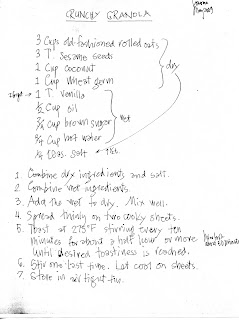 CRUNCHY GRANOLA
3 Cups old-fashioned rolled oats
3 T. Sesame seeds
1 Cup Coconut
1 Cup Wheat germ
dry
1 T. Vanilla
1/2 Cup oil
3/4 Cup brown sugar
3/4 Cup hot water
wet
3/4 teas. salt
1. Combine dry ingredients and salt.
2. Combine wet ingredients.
3. Add the wet to dry. Mix well.
4. Spread thinly on two cooky sheets.
5. Toast at 275°F stirring every ten
minutes for about a half hour or more
until desired toastiness is reached.
6. Stir one last time. Let cool on sheets.
7. Store in air tight